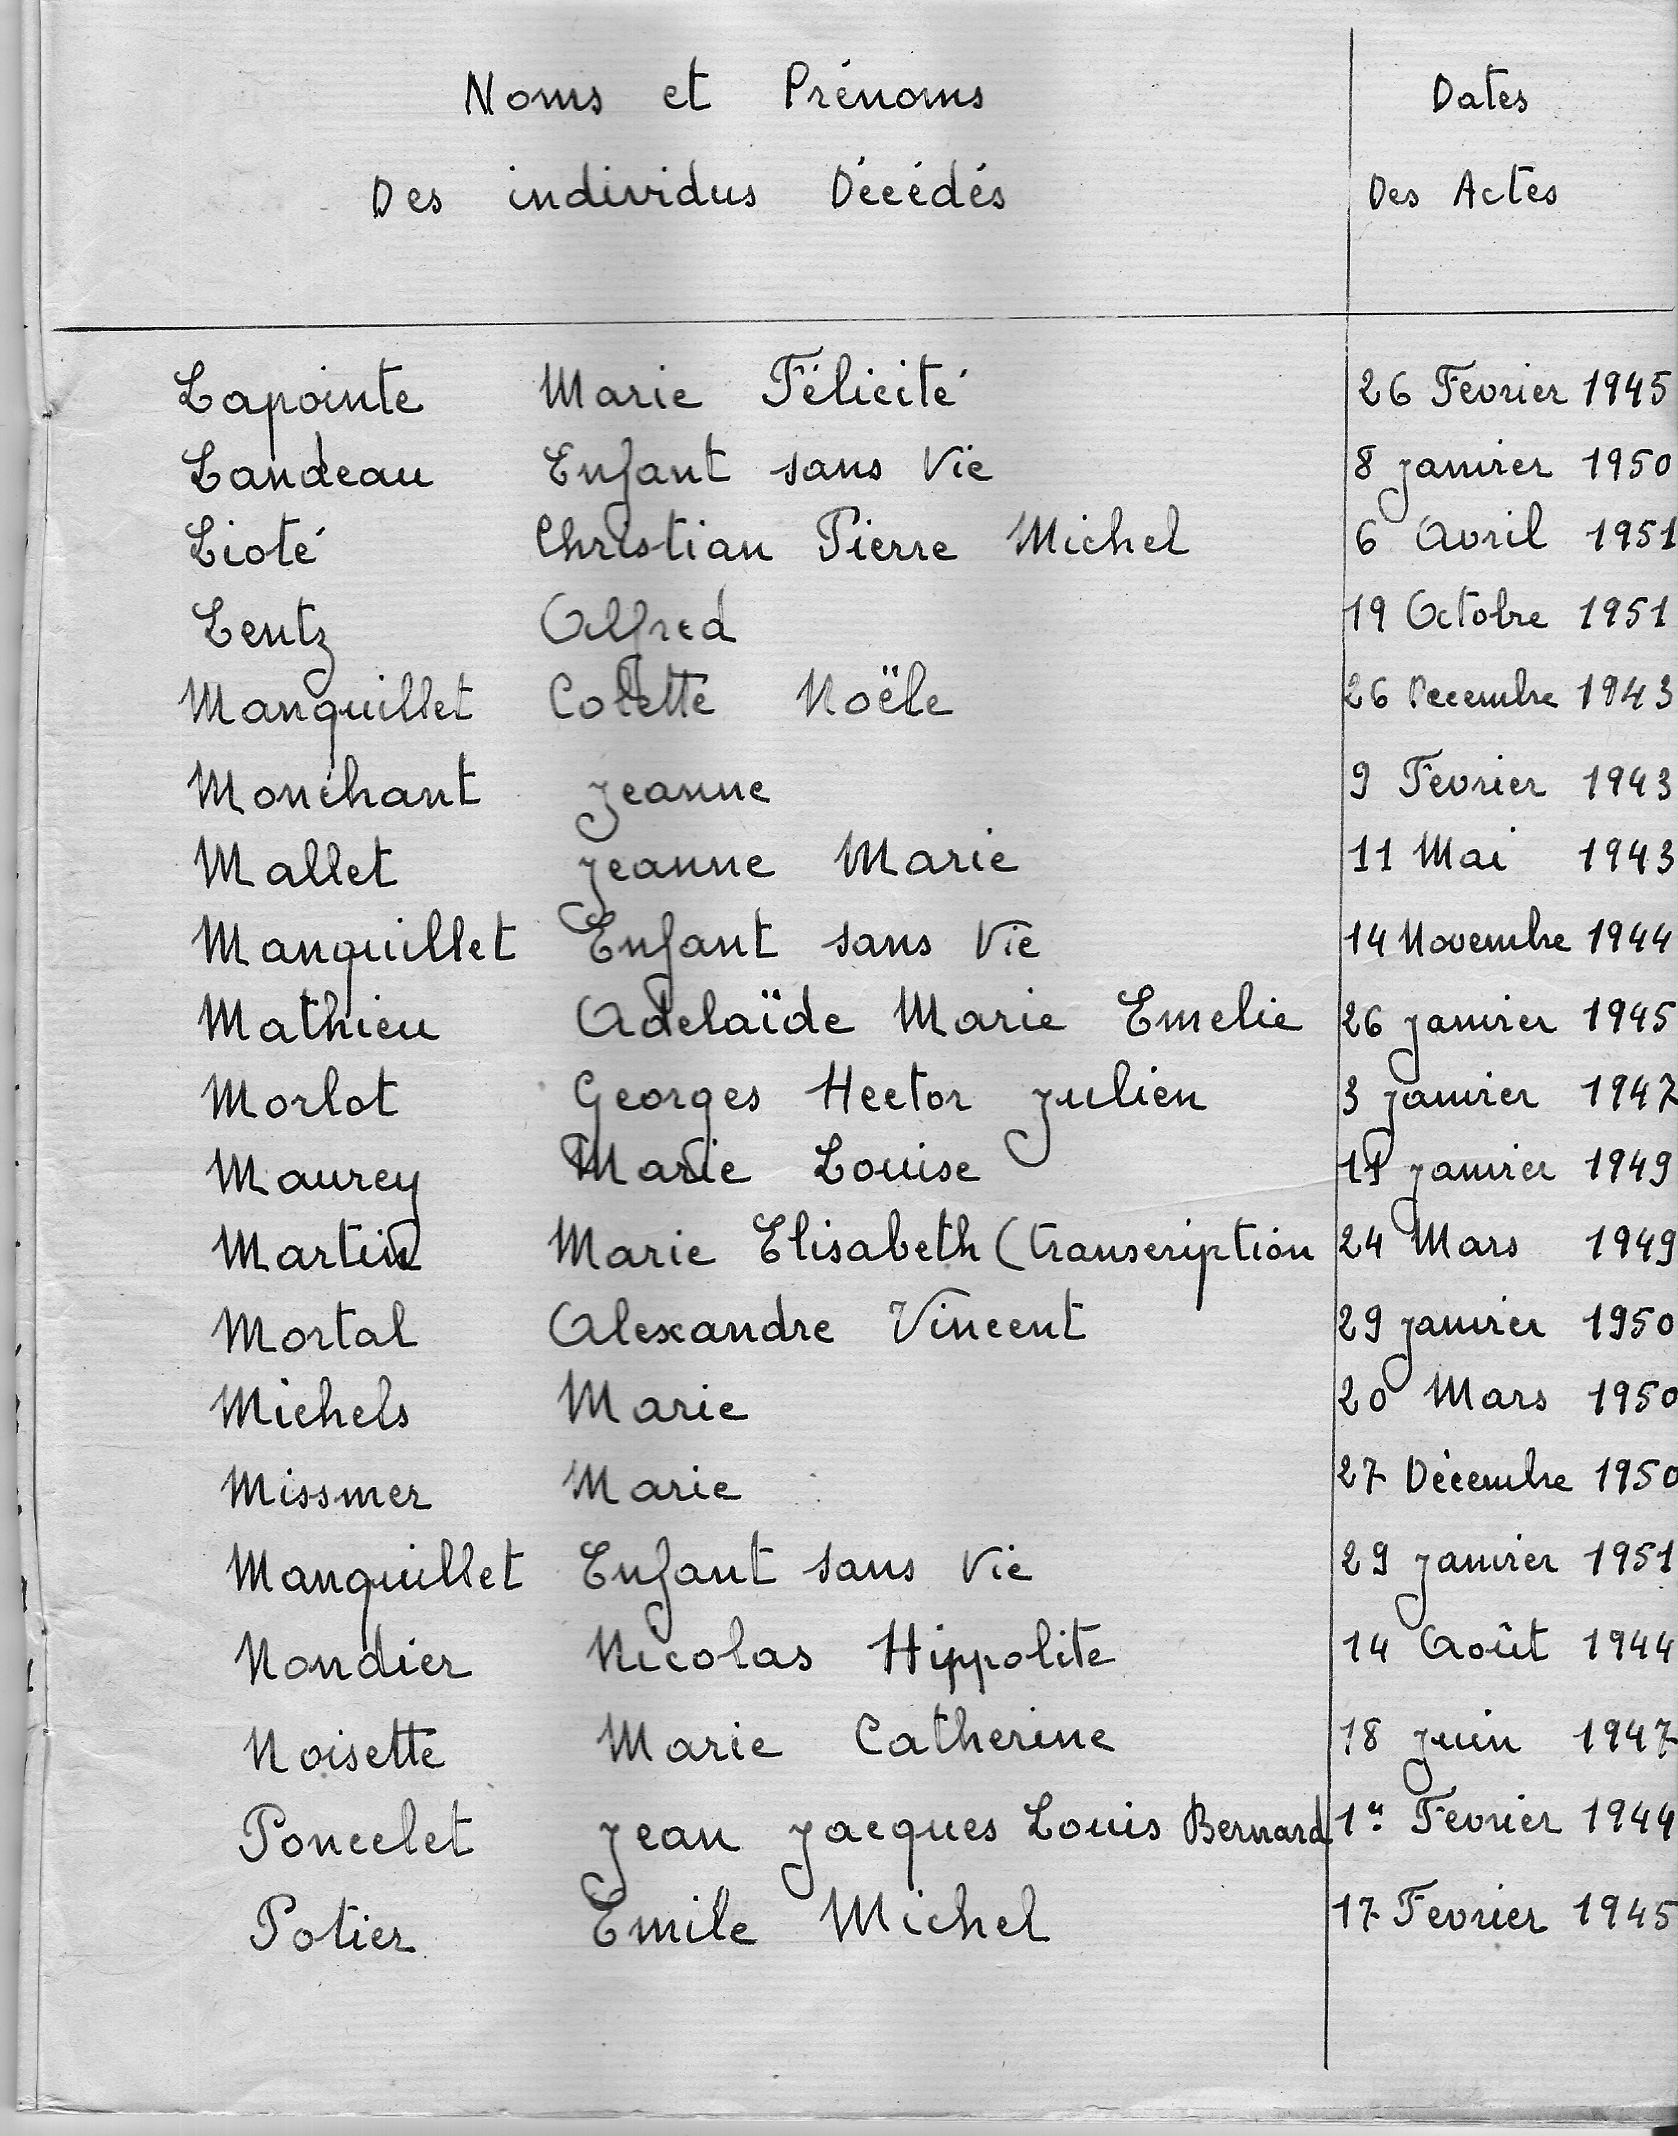 Noms et Prénoms Dates
Des individus Décédés Des Actes
Lapointe Marie Félicité 26 Fevrier 1945
Landeau Enfant sans Vie 8 janvier 1950
Lioté Christian Pierre Michel 6 Avril 1951
Lentz Alfred 19 Octobre 1951
Manquillet Colette Noële 26 Decembre 1943
Monchant Jeanne 9 Fevrier 1943
Mallet Jeanne Marie 11 Mai 1943
Manquillet Enfant sans Vie 14 Novembre 1944
Mathieu Adelaïde Marie Emelie 26 janvier 1945
Morlot Georges Hector Julien 3 janvier 1947
Maurey Marie Louise 11 janvier 1949
Martin Marie Elisabeth (transcription 24 Mars 1949
Mortal Alexandre Vincent 29 janvier 1950
Michels Marie 20 Mars 1950
Missmer Marie 27 Décembre 1950
Manquillet Enfant sans Vie 29 janvier 1951
Nondier Nicolas Hippolite 14 Août 1944
Noisette Marie Catherine 18 juin 1947
Poncelet Jean Jacques Louis Bernard 1er Fevrier 1944
Potier Emile Michel 17 Fevrier 1945